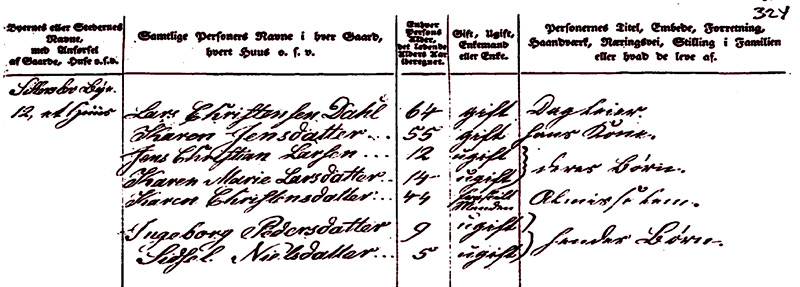 324
Byernes eller Stedernes Navne, med Anførsel af Gaarde, Huse o.s.v.
Samtlige Personers Navne i hver Gaard, hvert Huus o. s. v.
Enhver Persons Alder, det løbende Alders Aar iberegnet.
Gift, Ugift, Enkemand eller Enke.
Personernes Titel, Embede, Forretning, Haandværk, Næringsvei, Stilling i Familien eller hvad de leve af.
Bye.
12, et Huus Lars Christensen Dahl 64 gift Dagleier.
Karen Jensdatter... 55 gift hans Kone.
Jens Christian Larsen... 12 ugift
Karen Marie Larsdatter... 14 ugift } deres Børn.
Karen Christensdatter... 44 Manden Almisselem.
Ingeborg Pedersdatter 9 ugift
Sidsel Nielsdatter... 5 ugift } hendes Børn.